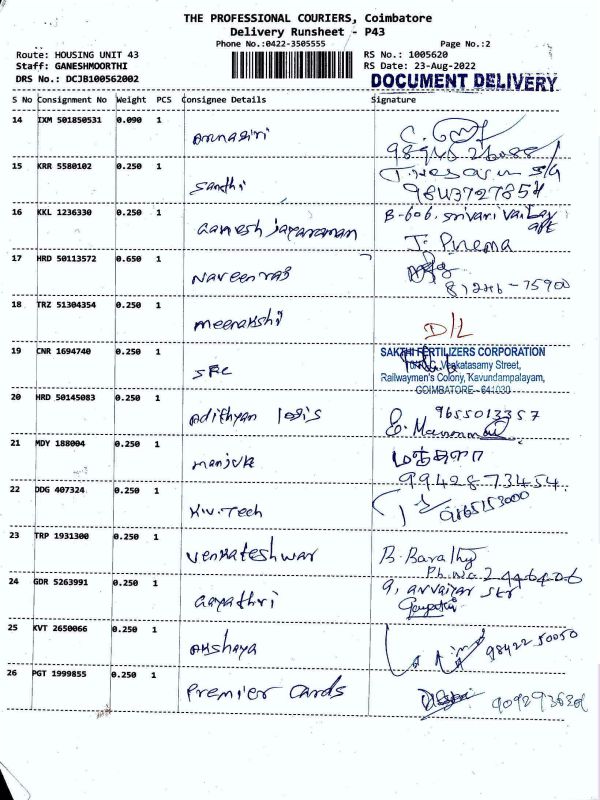 THE PROFESSIONAL COURIERS, Coimbatore
Delivery Runsheet - P43
Phone No.:0422-3505555 Page No.:2
Route: HOUSING UNIT 43 RS No.: 1005620
Staff: GANESHMOORTHI RS Date: 23-Aug-2022
DRS No.: DCJB100562002 DOCUMENT DELIVERY
S No Consignment No Weight PCS Consignee Details Signature
14 IXM 501850531 0.090 1 Arunagiri
15 KRR 5580102 0.250 1 Santhi
9843727854
16 KKL 1236330 0.250 1 Ganesh Jayaraman B-606, Srivari
J. Prema
17 HRD 50113572 0.650 1 Naveenraj
81246-75900
18 TRZ 51304354 0.250 1 Meenakshi D/L
19 CNR 1694740 0.250 1 SFC SAKTHI FERTILIZERS CORPORATION
Venkatasamy Street,
Railwaymen's Colony, Kavundampalayam,
COIMBATORE - 641030
20 HRD 50145083 0.250 1 Adithyan 9655013357
21 MDY 188004 0.250 1 Manjula
99428 73454
22 DDG 407324 0.250 1 K.V.Tech 9865153000
23 TRP 1931300 0.250 1 Venkateshwar B. Barathy
Ph.No. 2446406
24 GDR 5263991 0.250 1 Gayathri 9, avvaiyar str
Gayathri
25 KVT 2650066 0.250 1 Akshaya 98422 50050
26 PGT 1999855 0.250 1 Premier Cards